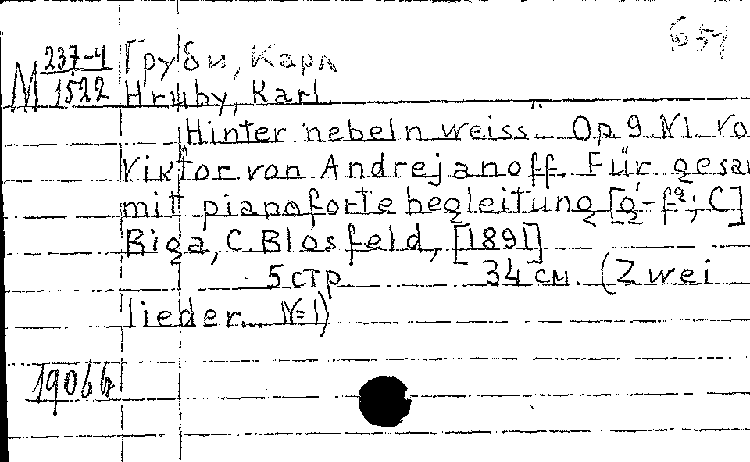 651
М 237-4
1522
Груби, Карл
Hruby, Karl
Hinter nebeln weiss... Op 9 N1. Vo
Viktor von Andrejanoff. Für gesan
mit pianofortebegleitung [g'-f²; C]
Riga, C. Blosfeld, [1891]
5 стр. 34 см. (Zwei
lieder... N=1)
1906